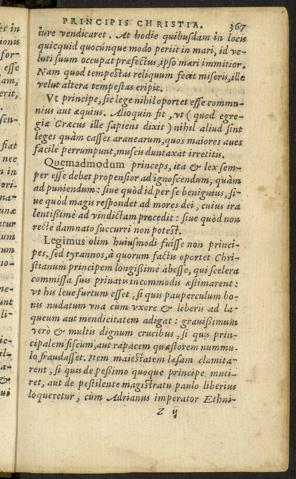 PRINCIPIS CHRISTIA. 367
iure vendicaret. At hodie quibusdam in locis
quicquid quocunque modo periit in mari, id ve-
luti suum occupat præfectus, ipso mari immitior.
Nam quod tempestas reliquum fecit miseris, ille
velut altera tempestas eripit.
Vt principe, sic lege nihil oportet esse commu-
nius aut æquius. Alioquin fit, vt (quod egre-
giè Græcus ille sapiens dixit) nihil aliud sint
leges quàm casses aranearum, quos maiores aues
facilè perrumpunt, muscæ duntaxat irretitis.
Quemadmodum princeps, ita & lex sem-
per esse debet propensior ad ignoscendum, quàm
ad puniendum: siue quòd id per se benignius, si-
ue quòd magis respondet ad mores dei, cuius ira
lentissimè ad vindictam procedit: siue quòd non
rectè damnato succurri non potest.
Legimus olim huiusmodi fuisse non princi-
pes, sed tyrannos, à quorum factis oportet Chri-
stianum principem longissimè abesse, qui scelera
commissa suis priuatis incommodis æstimarent:
vt his leue furtum esset, si quis pauperculum bo-
nis nudatum vnà cum vxore & liberis ad la-
queum aut mendicitatem adigat: grauissimum
verò & multis dignum crucibus, si quis prin-
cipalem fiscum, aut rapacem quæstorem nummu-
lo fraudasset. Item maiestatem læsam clamita-
rent, si quis de pessimo quoque principe muti-
ret, aut de pestilente magistratu paulo liberius
loqueretur, cùm Adrianus imperator Ethni-
Z ij